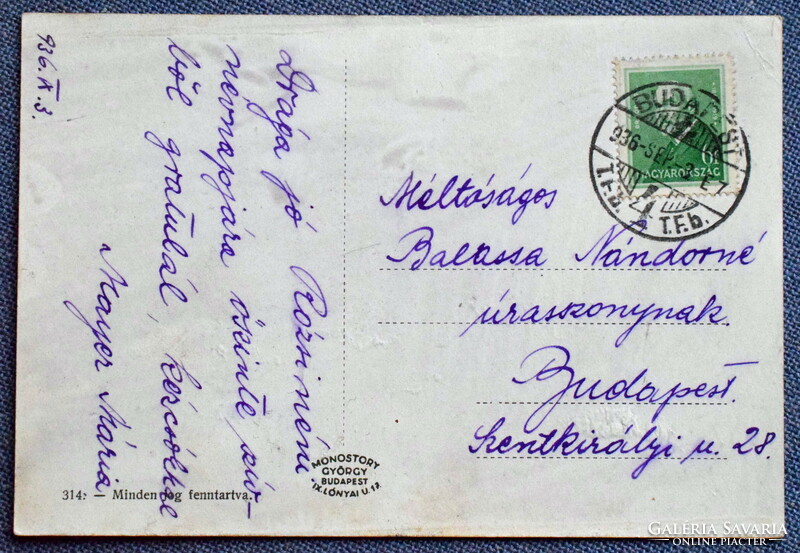 936.IX.3.
Drága jó Rózsi néni
névnapjára őszinte szív-
ből gratulál, kézcsókkal
Mayer Mária
Méltóságos
Balassa Nándorné
úrasszonynak.
Budapest.
Szentkirályi u. 28.
BUDAPEST
936-SEP.
T.F.b. T.F.b.
MAGYARORSZÁG
MONOSTORY
GYÖRGY
BUDAPEST
IX. LÓNYAI U. 17.
314. — Minden jog fenntartva.
GALÉRIA SAVARIA
ONLINE PIACTÉR